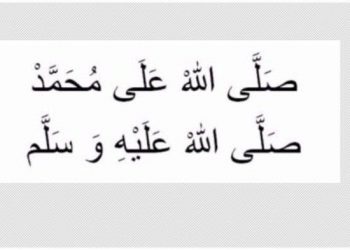 صَلَّى اللهْ عَلَى مُحَمَّدْ
صَلَّى اللهْ عَلَيْهِ وَ سَلَّم